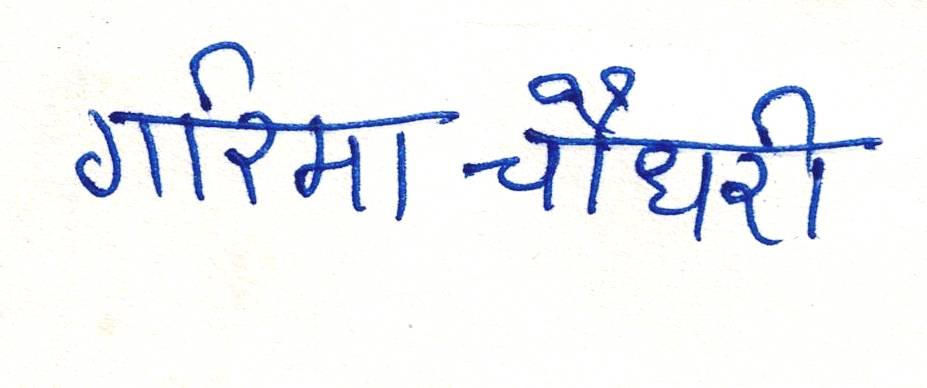 गरिमा चौधरी